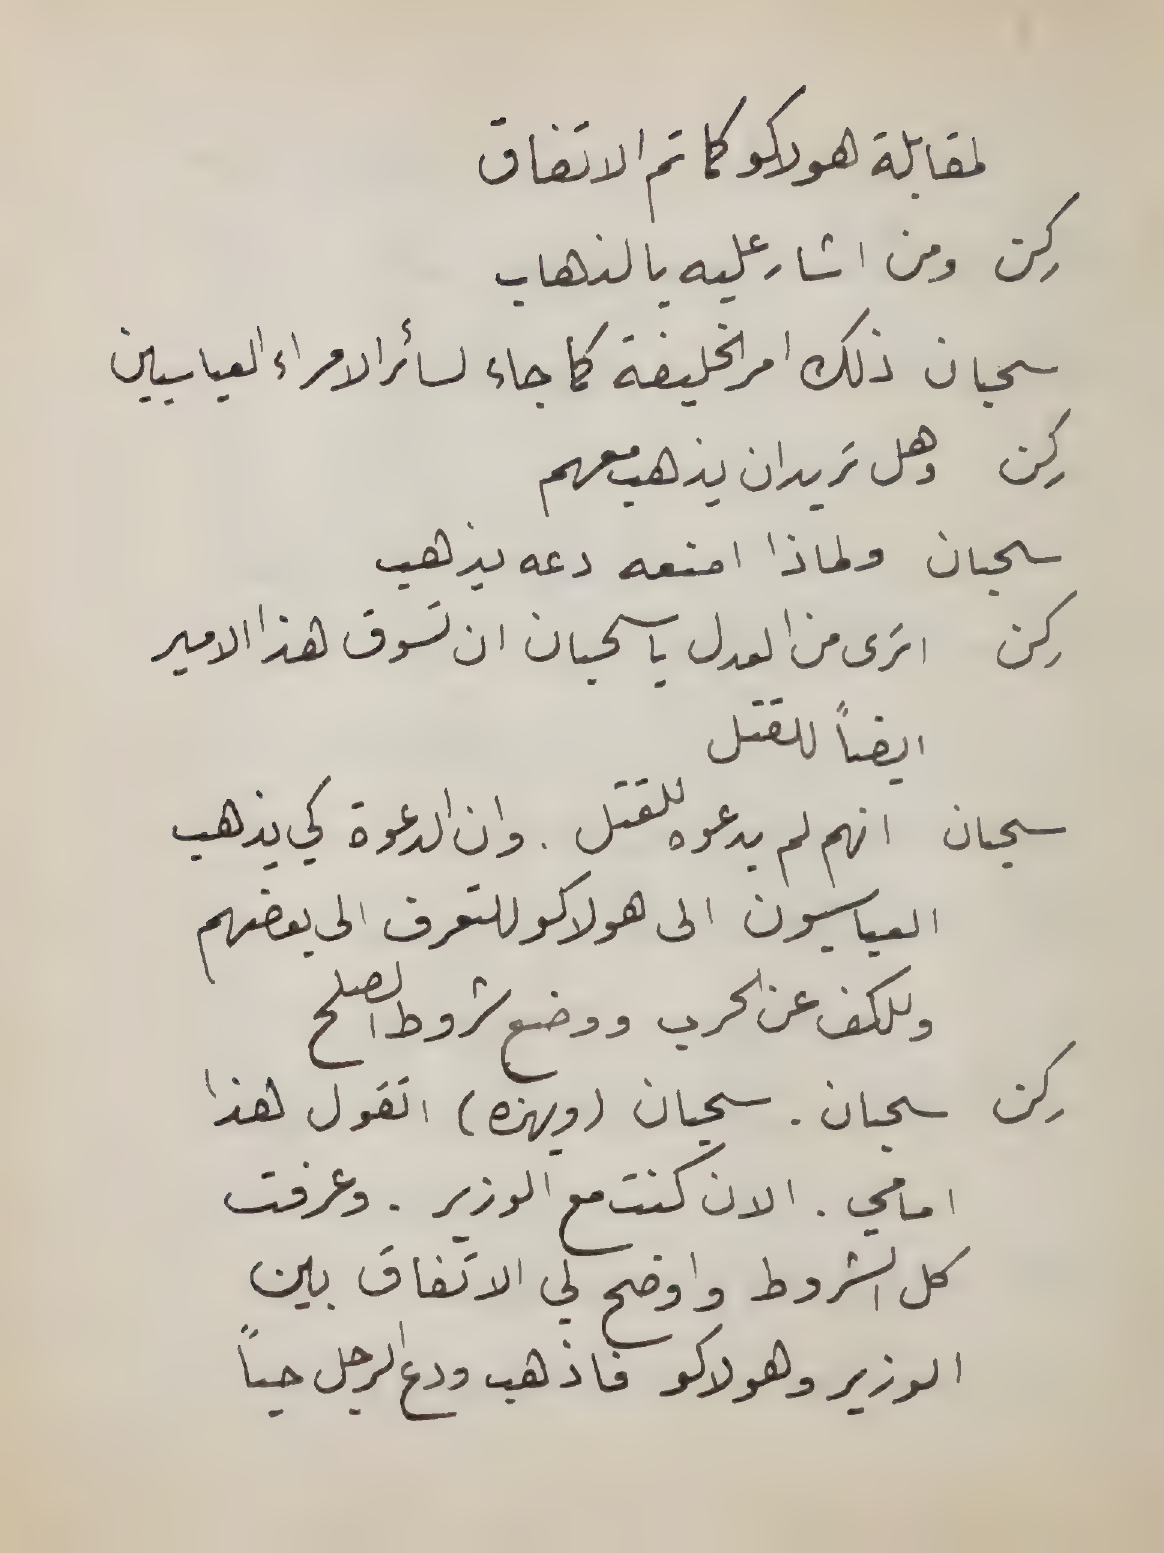 لمقابلة هولاكو كما تم الاتفاق
ركن ومن اشار عليه بالذهاب
سحبان ذلك امر الخليفة كما جاء لسائر الامراء العباسيين
ركن وهل تريد ان يذهب معهم
سحبان ولماذا امنعه دعه يذهب
ركن اترى من العدل يا سحبان ان تسوق هذا الامير
ايضاً للقتل
سحبان انهم لم يدعوه للقتل . وان الدعوة كي يذهب
العباسيون الى هولاكو للتعرف الى بعضهم
وللكف عن الحرب ووضع شروط الصلح
ركن سحبان . سحبان (ويهزه) اتقول هذا
امامي . الان كنت مع الوزير . وعرفت
كل الشروط واوضح لي الاتفاق بين
الوزير وهولاكو فاذهب ودع الرجل حياً